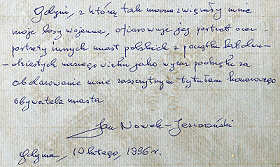 Gdyni, z którą tak mocno związały mnie
moje losy wojenne, ofiarowuję jej portret oraz
portrety innych miast polskich z początku lub dwu-
dziestych naszego wieku jako wyraz podzięki za
obdarowanie mnie zaszczytnym tytułem honorowego
obywatela miasta
Jan Nowak-Jeziorański
Gdynia, 10 lutego, 1996 r.